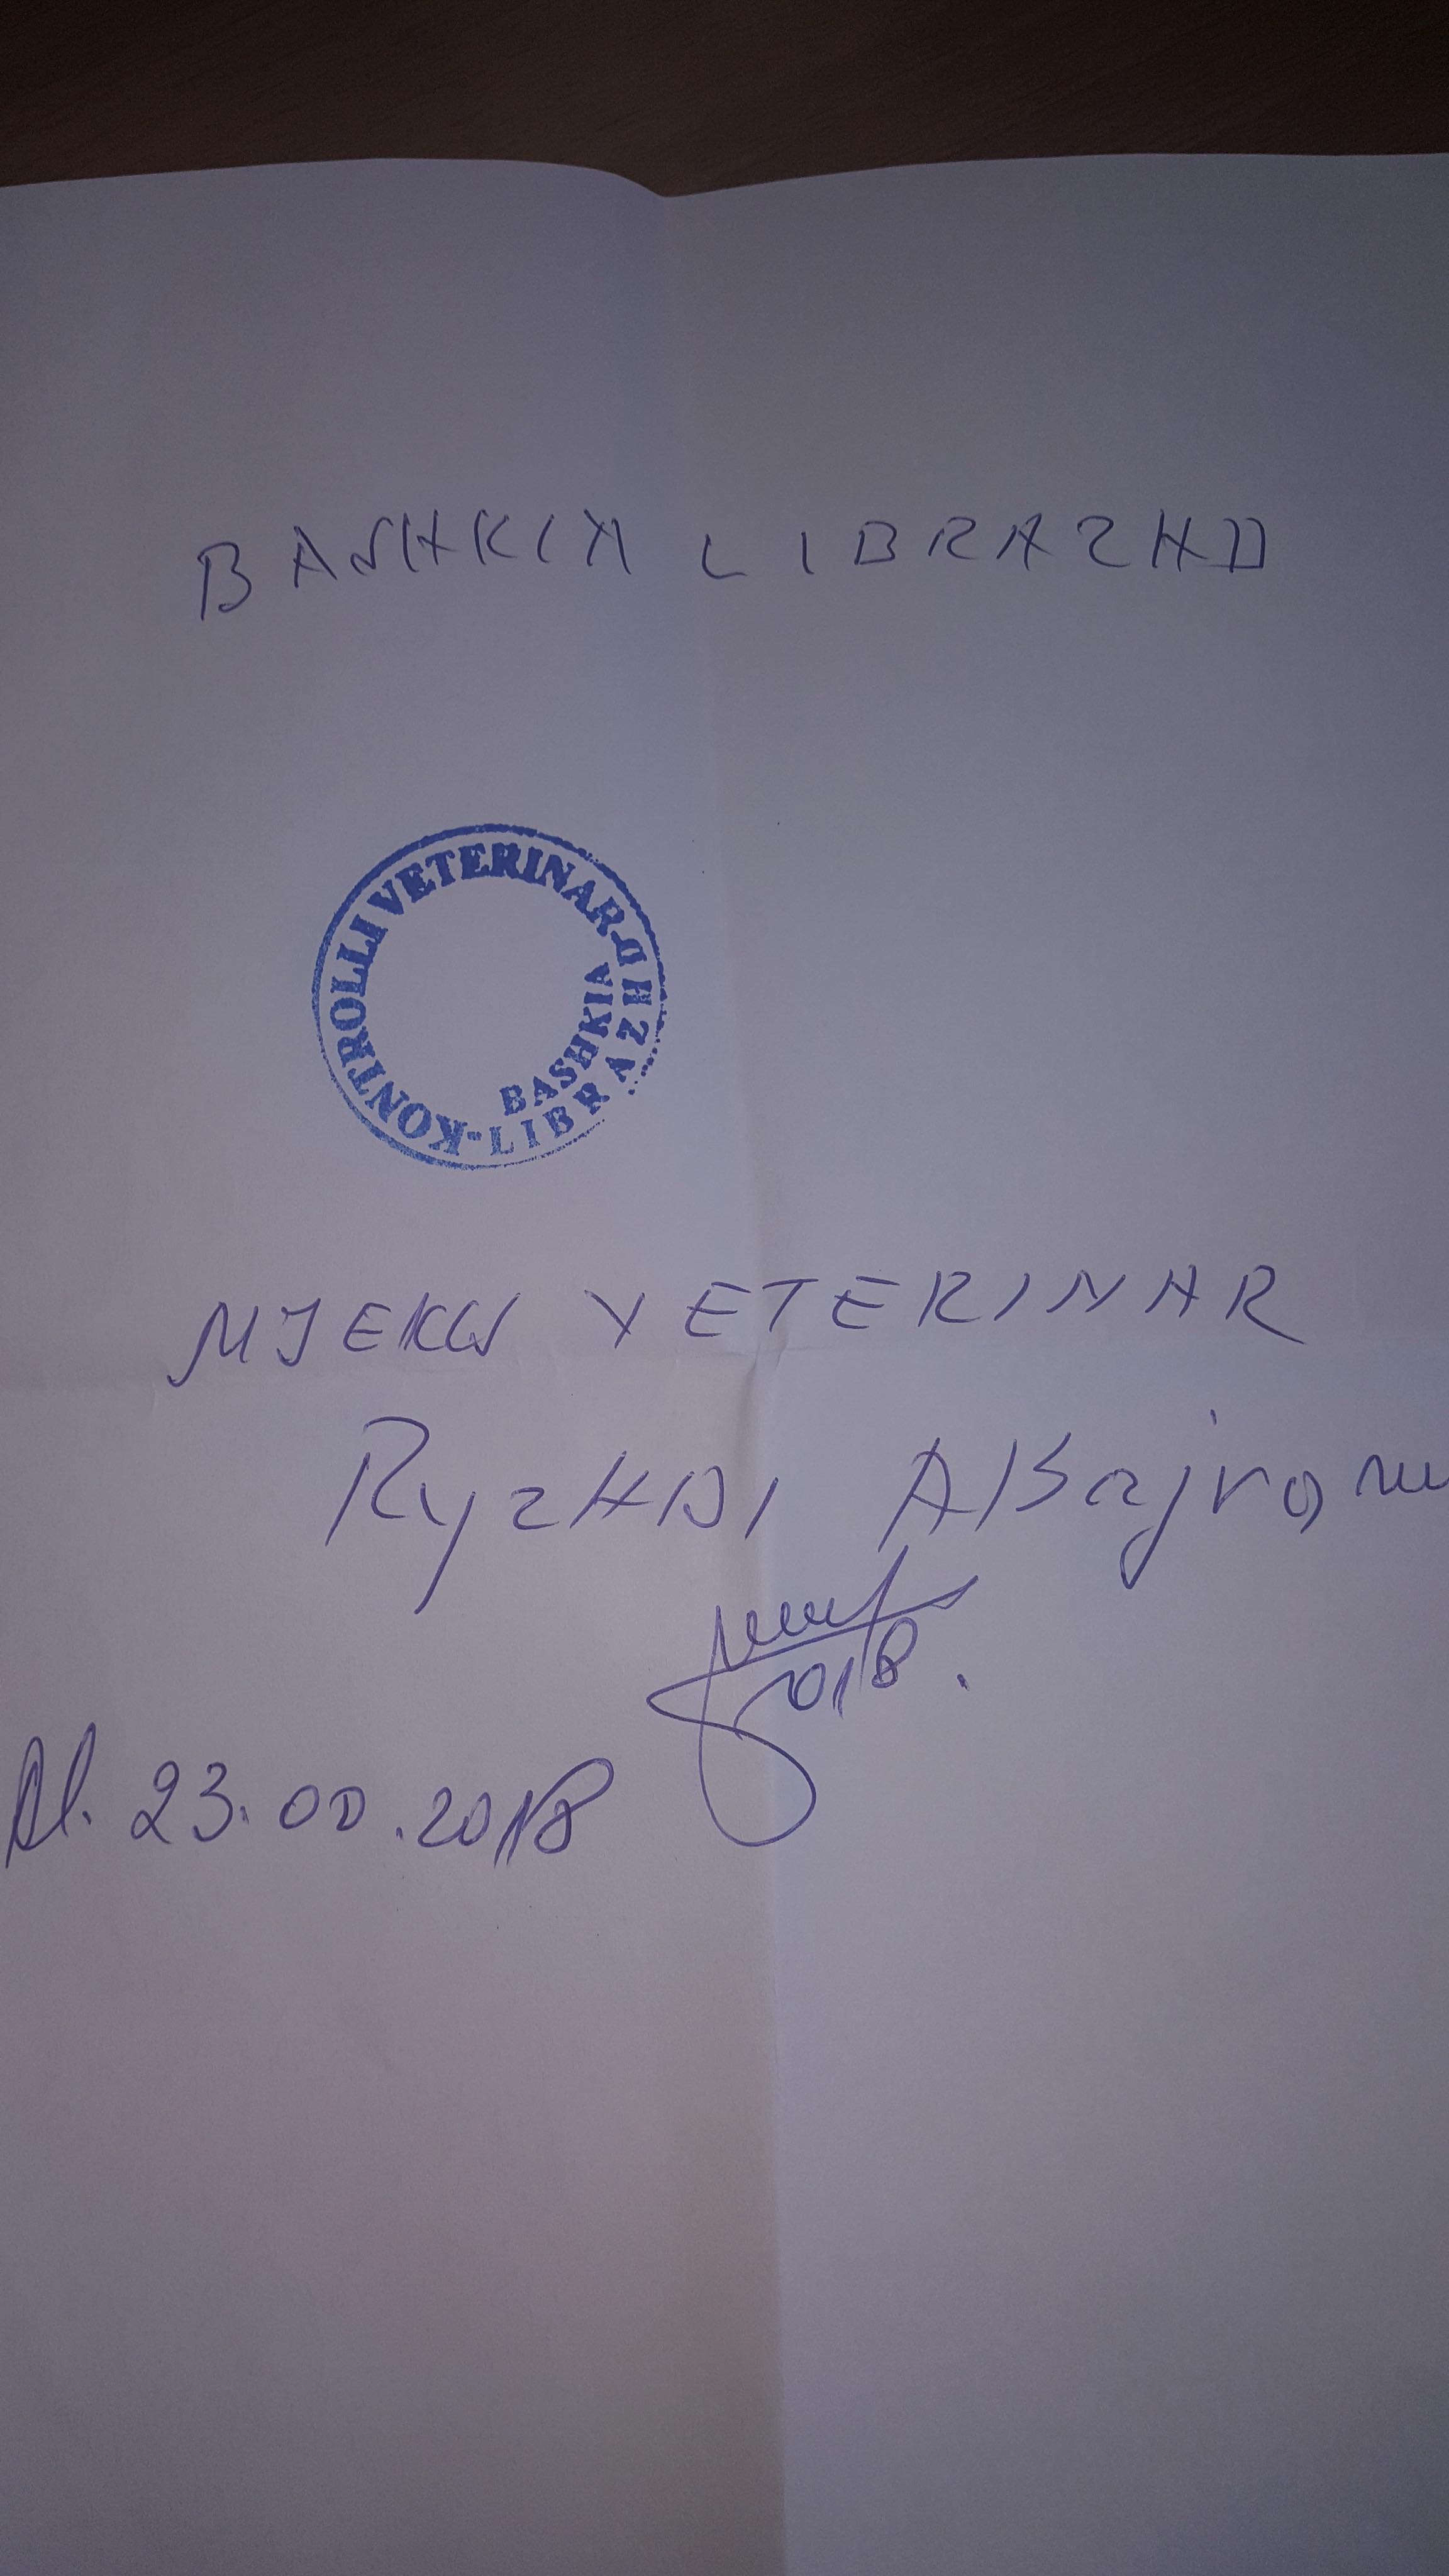 BASHKIA LIBRAZHD
KONTROLLI VETERINAR-
BASHKIA
LIBRAZHD
MJEKU VETERINAR
RyzHDI
2018.
Dl. 23.00.2018